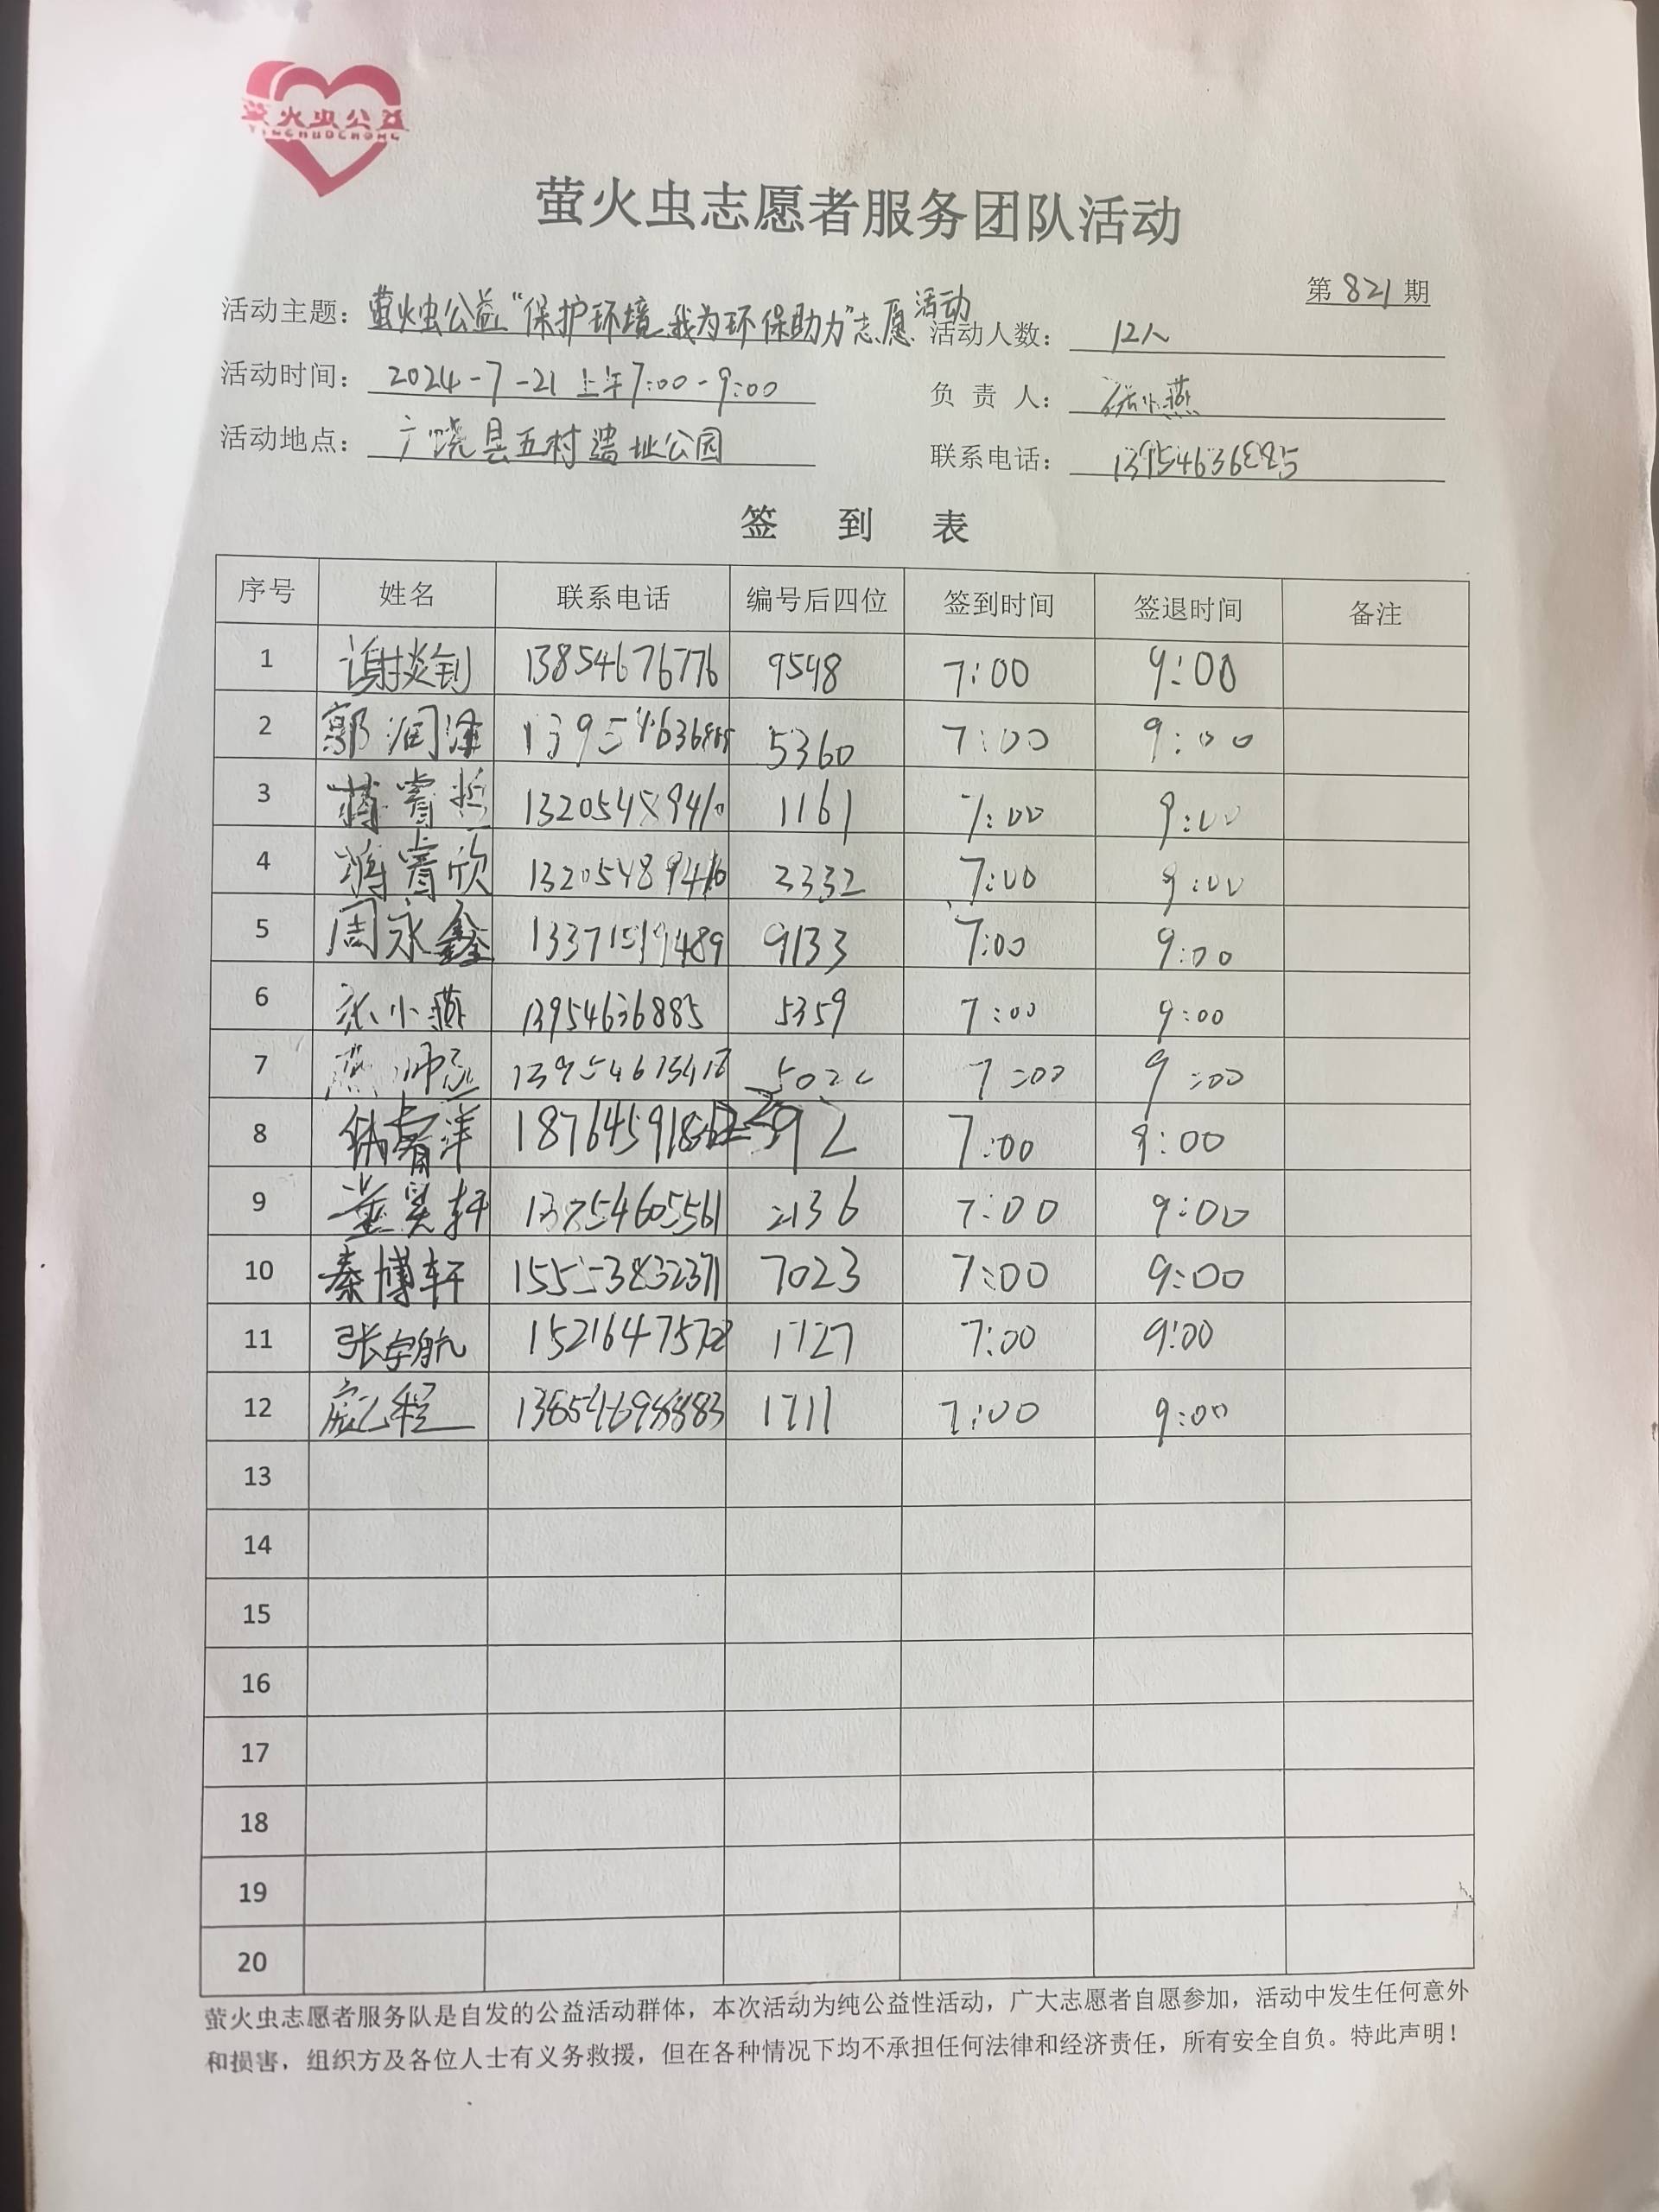 萤火虫公益
YINGHUOCHONG
萤火虫志愿者服务团队活动
第821期
活动主题：萤火虫公益“保护环境，我为环保助力”志愿活动
活动人数：12人
活动时间：2024-7-21 上午7:00-9:00
负责人：张小燕
活动地点：广饶县五村遗址公园
联系电话：13954636885
签到表
序号 姓名 联系电话 编号后四位 签到时间 签退时间 备注
1 谢炎钊 13854676776 9598 7:00 9:00
2 郭润泽 13954636885 5360 7:00 9:00
3 蒋睿哲 13205489410 1161 7:00 9:00
4 蒋睿欣 13205489410 3332 7:00 9:00
5 周永鑫 13371519489 9133 7:00 9:00
6 张小燕 13954636885 5359 7:00 9:00
7 7:00 9:00
8 7:00 9:00
9 董昊轩 2136 7:00 9:00
10 秦博轩 7023 7:00 9:00
11 张宇航 1727 7:00 9:00
12 1711 7:00 9:00
13
14
15
16
17
18
19
20
萤火虫志愿者服务队是自发的公益活动群体，本次活动为纯公益性活动，广大志愿者自愿参加，活动中发生任何意外
和损害，组织方及各位人士有义务救援，但在各种情况下均不承担任何法律和经济责任，所有安全自负。特此声明！